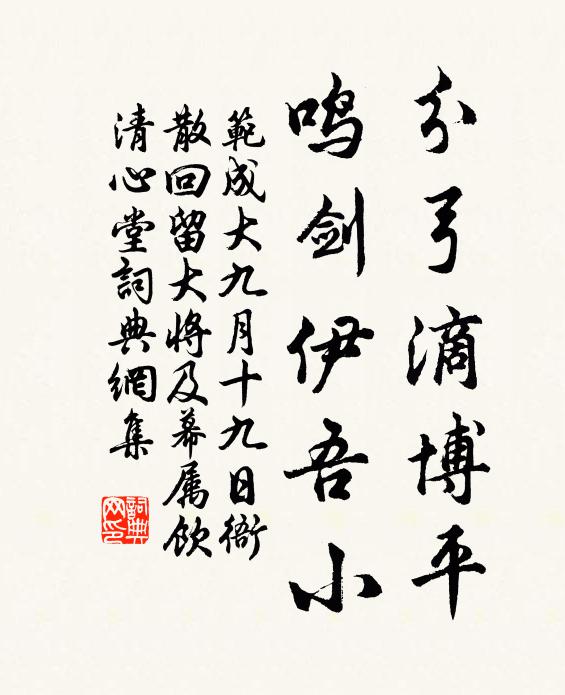 分弓滴博平
鸣剑伊吾小
範成大九月十九日衙
散回留大将及幕属饮
清心堂詞典網集
詞典网印